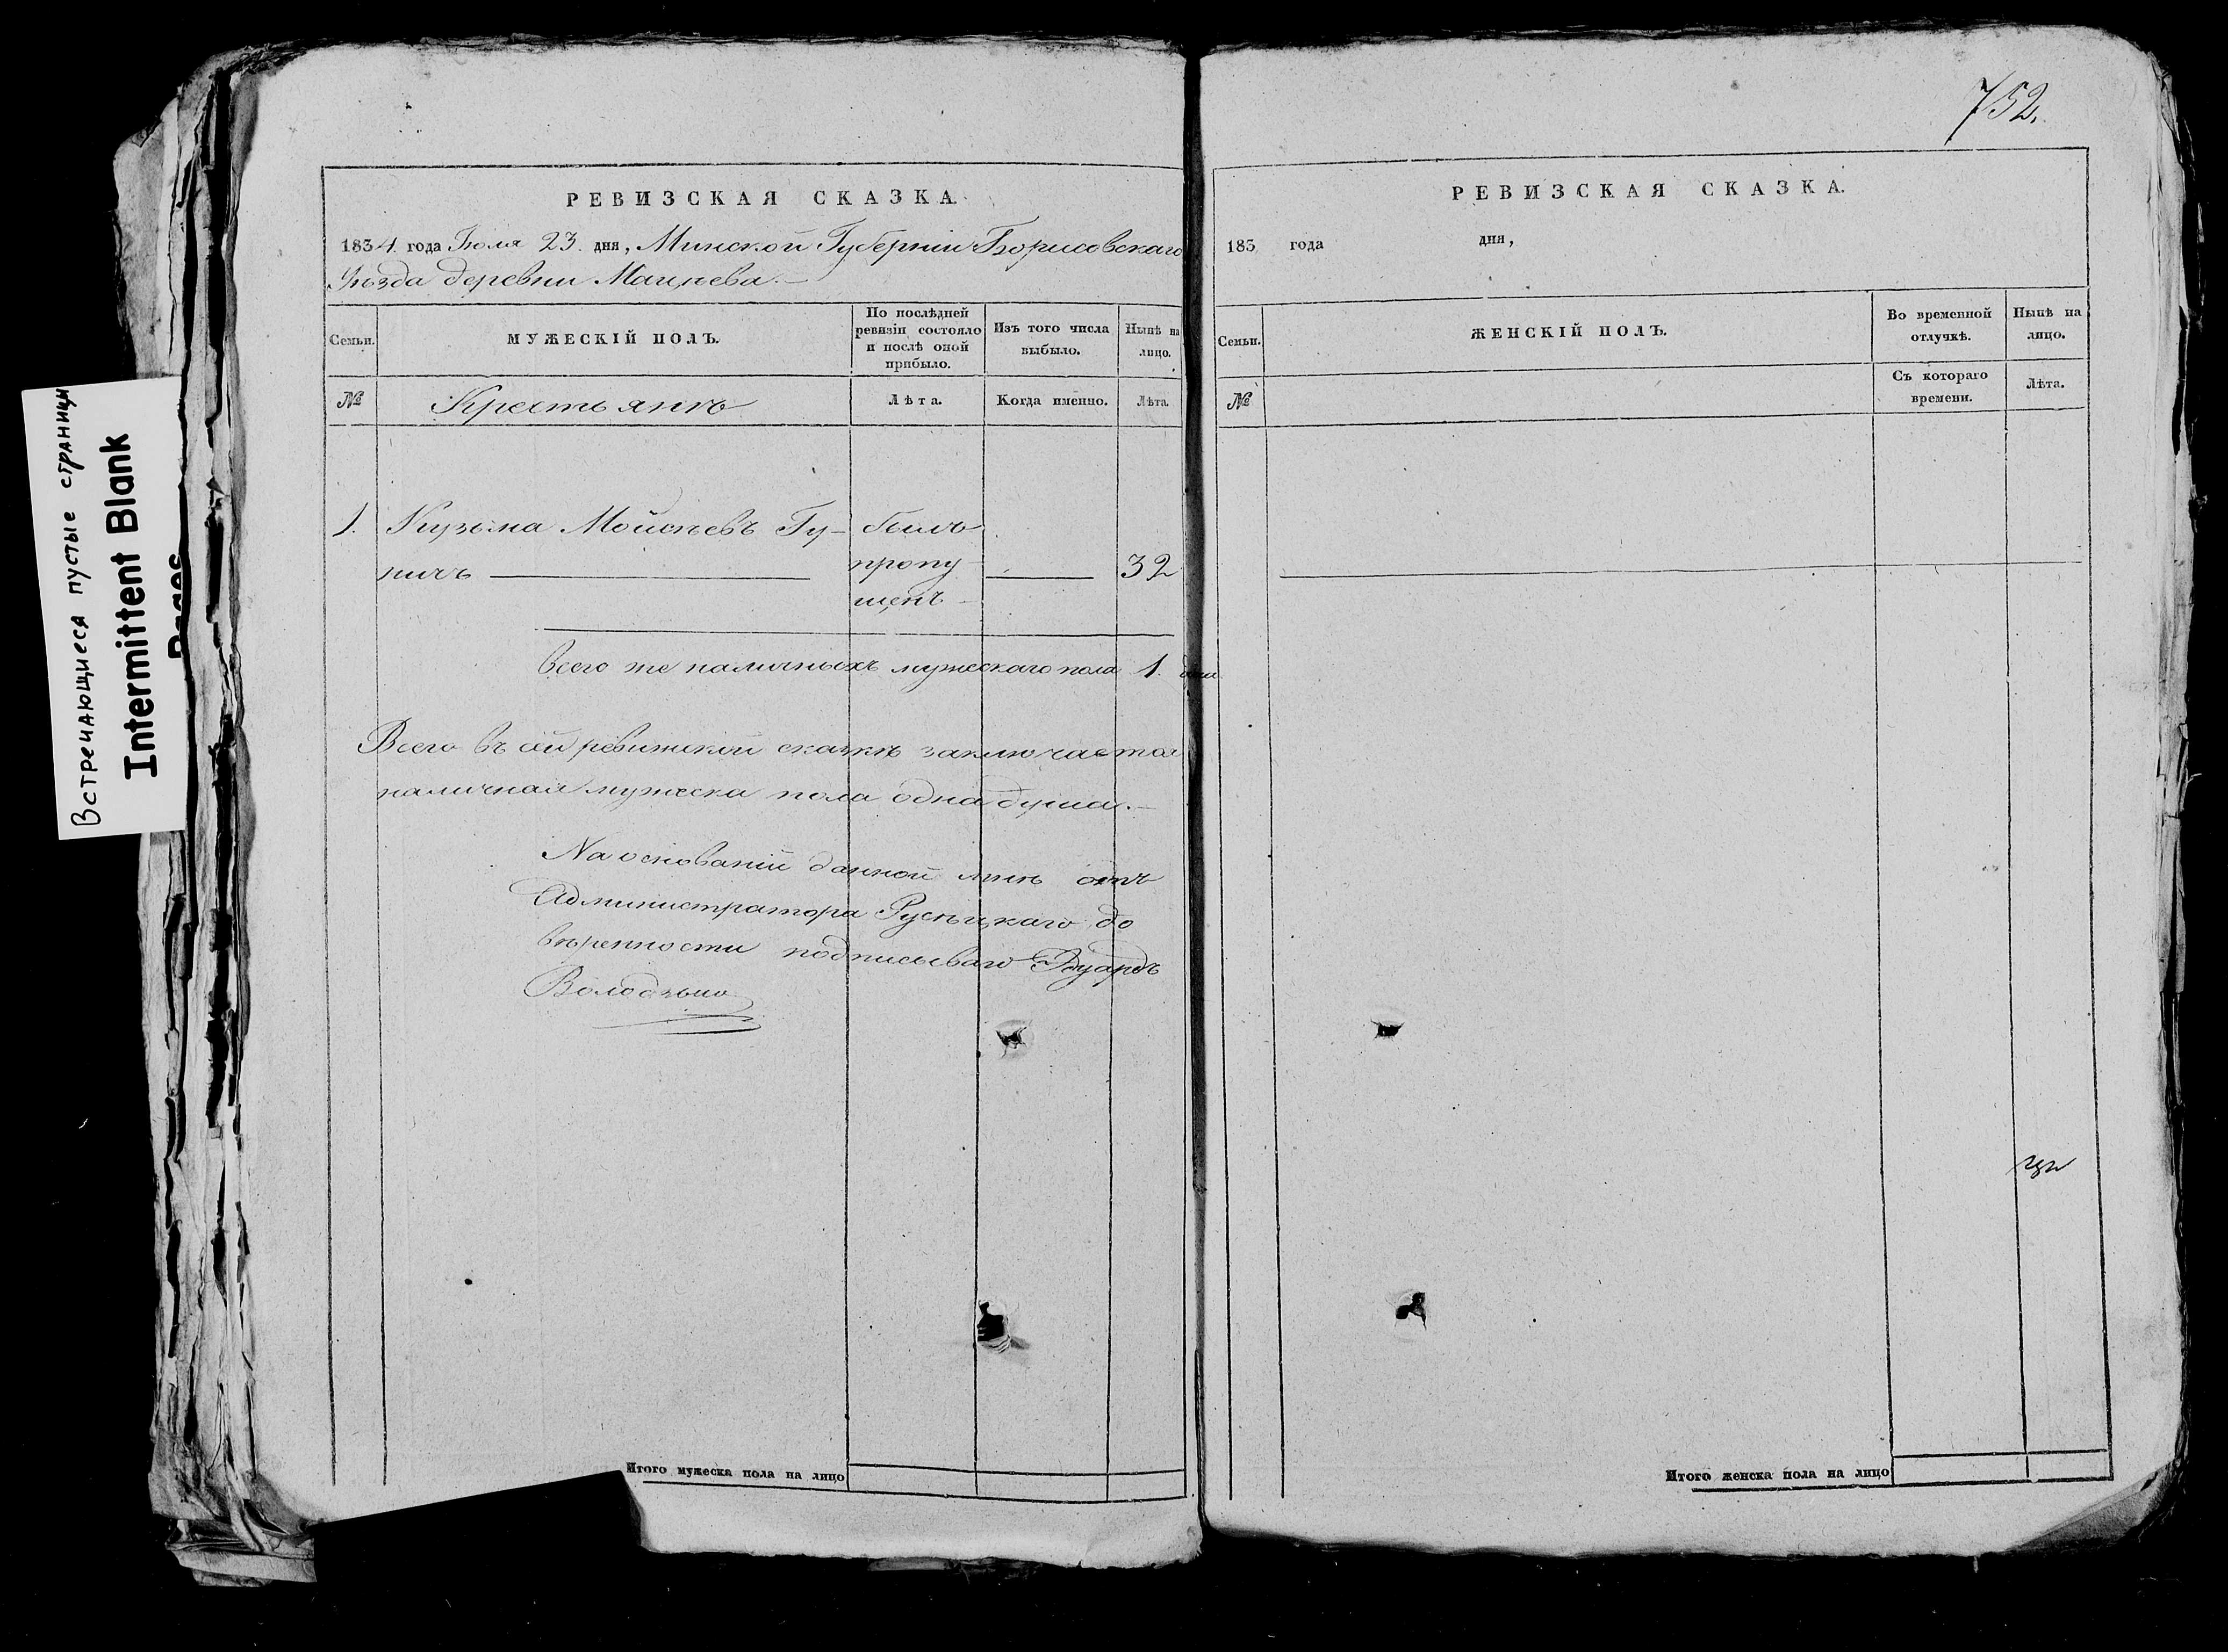 Встречающиеся пустые страницы
Intermittent Blank
Pages
752.
РЕВИЗСКАЯ СКАЗКА.
1834 года Іюля 23. дня, Минской Губерніи Борисовскаго
Уѣзда деревни Мацкева.—
Семьи.
МУЖЕСКІЙ ПОЛЪ.
По послѣдней
ревизіи состояло
и послѣ оной
прибыло.
Изъ того числа
выбыло.
Нынѣ на
лицо.
№
Крестьянъ
Лѣта.
Когда именно.
Лѣта.
1. Кузьма Мойсѣевъ Гу- былъ
ничь пропу- 32
щенъ
Всего же наличныхъ мужескаго пола 1. душа
Всего въ сей ревизской сказкѣ заключается
наличная мужеска пола одна душа.—
На основаніи данной мнѣ отъ
Администратора Русѣцкаго до
вѣренности подписываю Эдуардъ
Володзько
Итого мужеска пола на лицо
РЕВИЗСКАЯ СКАЗКА.
183 года дня,
Семьи.
ЖЕНСКІЙ ПОЛЪ.
Во временной
отлучкѣ.
Нынѣ на
лицо.
№
Съ котораго
времени.
Лѣта.
Итого женска пола на лицо